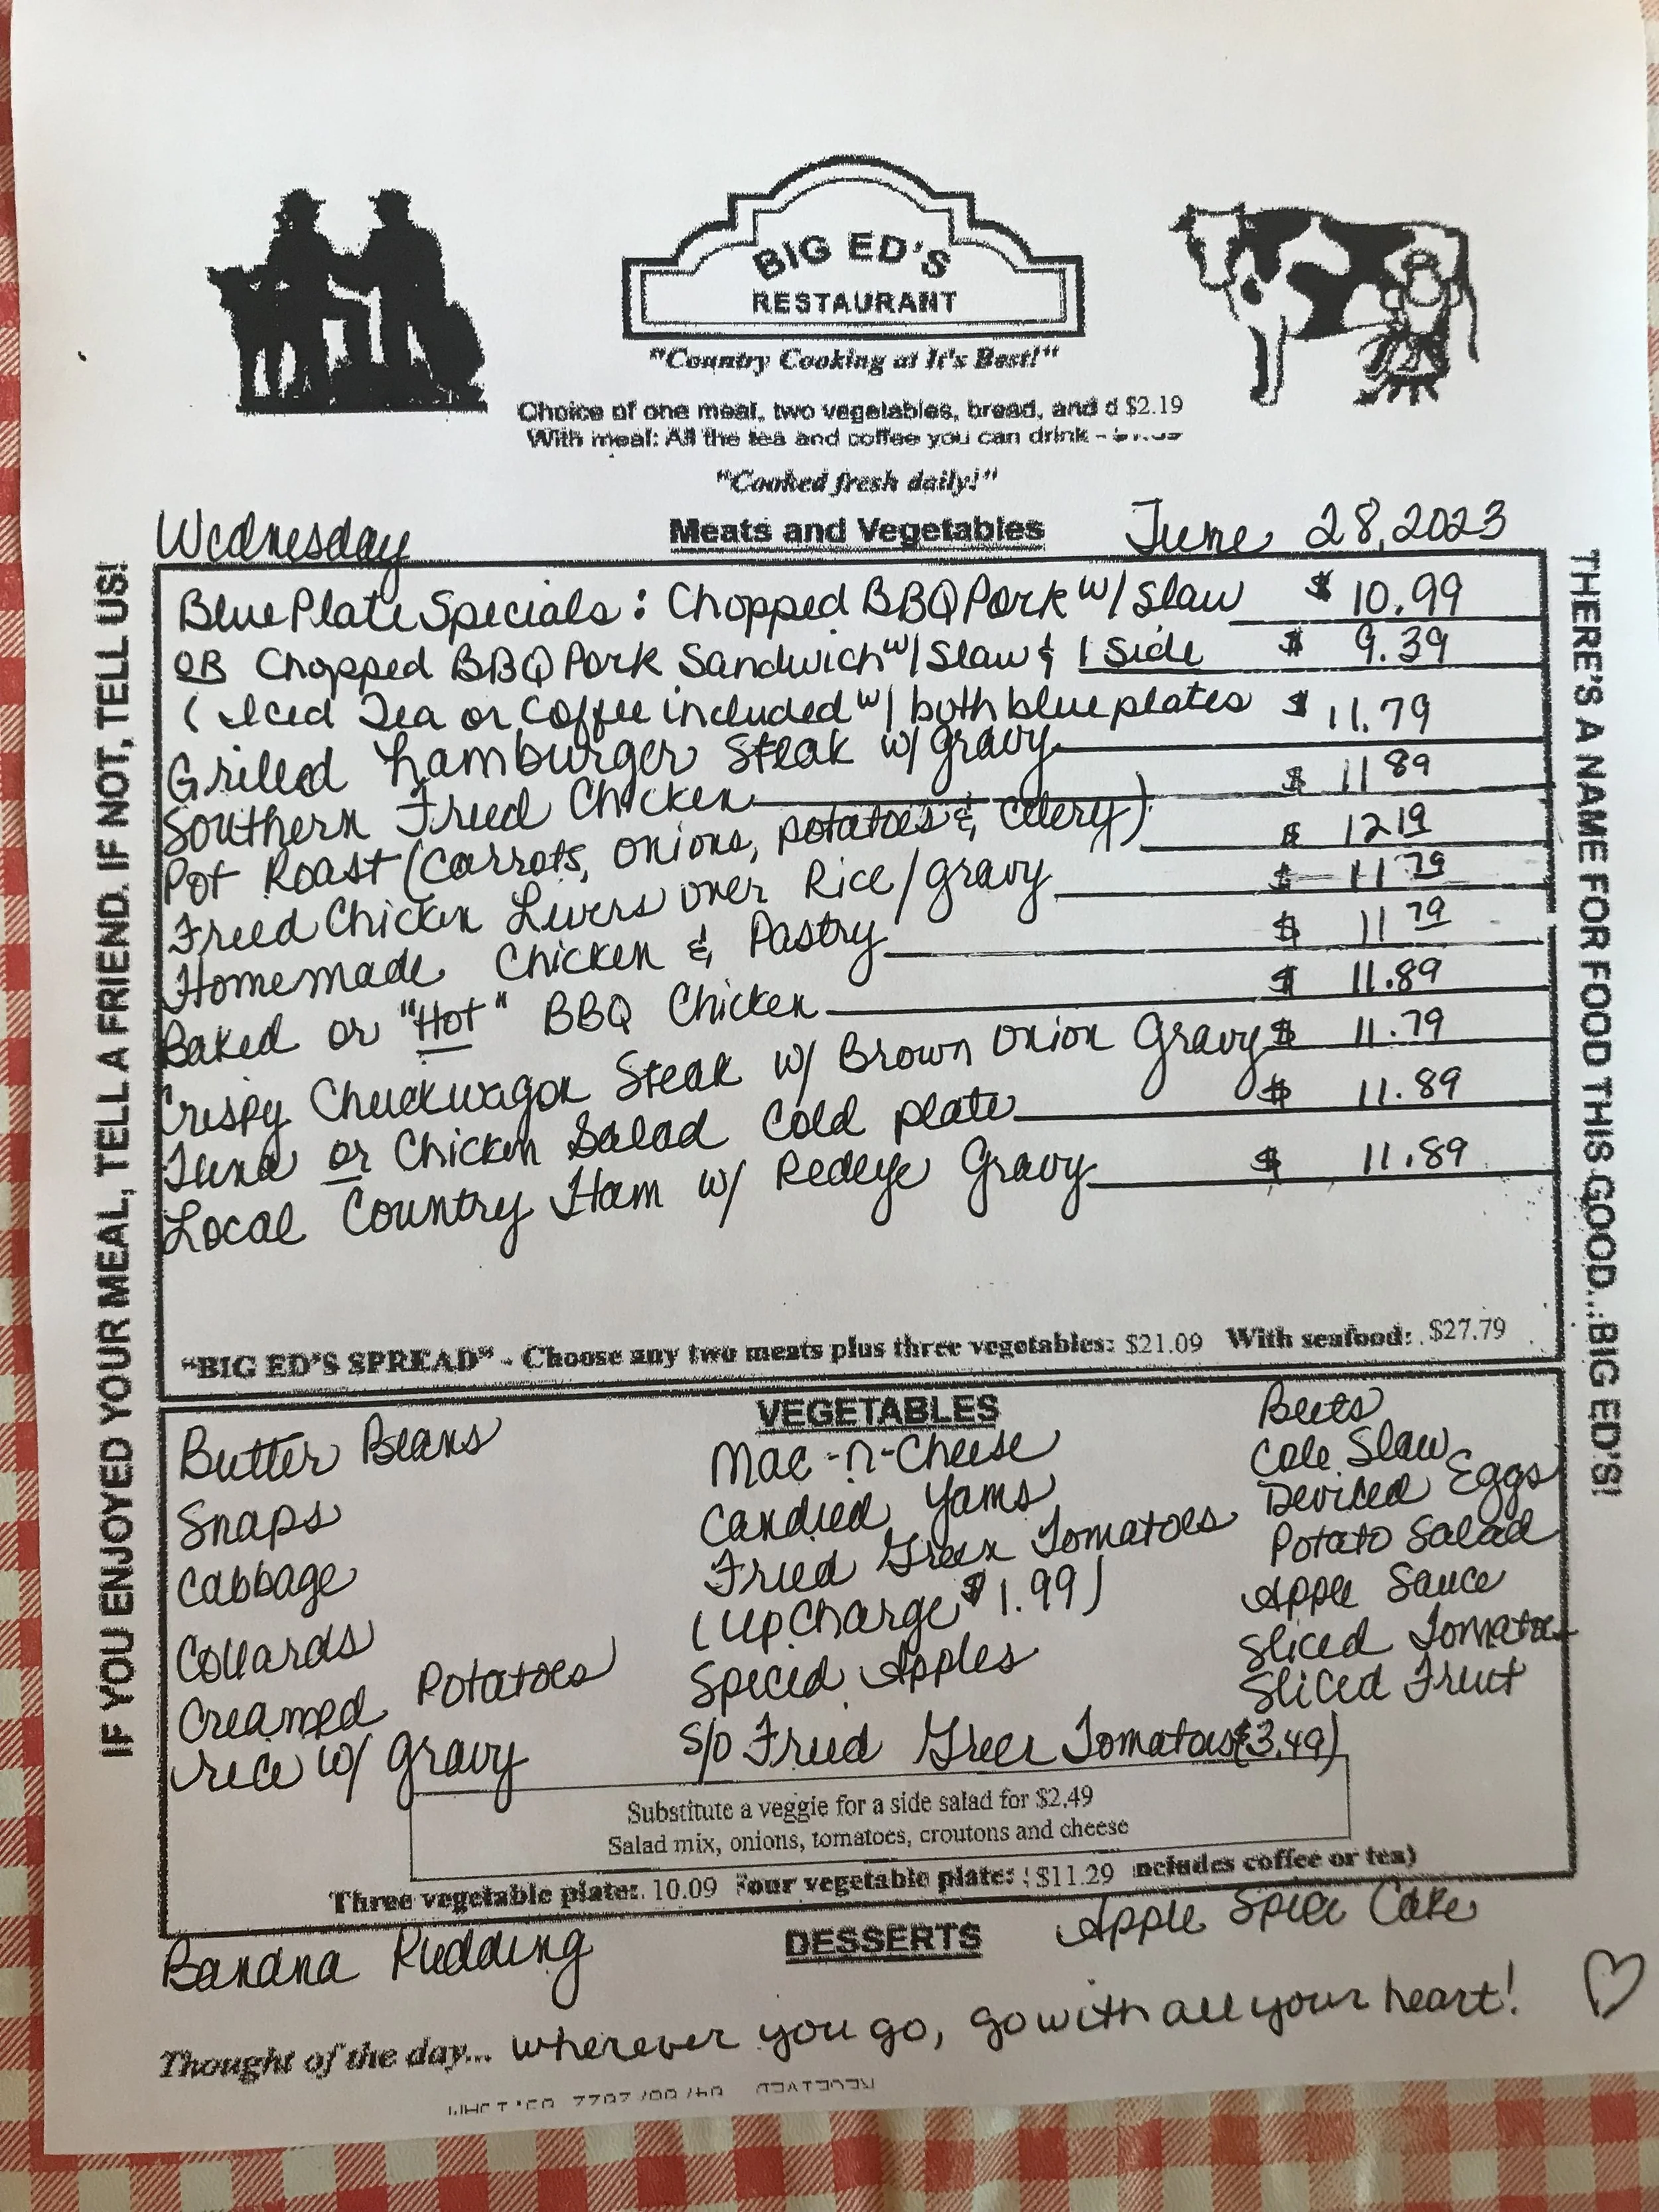 BIG ED'S
RESTAURANT
"Country Cooking at It's Best!"
Choice of one meat, two vegetables, bread, and d $2.19
With meal: All the tea and coffee you can drink -
"Cooked fresh daily!"
Wednesday Meats and Vegetables June 28, 2023
Blue Plate Specials: Chopped BBQ Pork w/ Slaw $ 10.99
OR Chopped BBQ Pork Sandwich w/ Slaw & 1 Side $ 9.39
( Iced Tea or Coffee included w/ both blue plates
Grilled Hamburger Steak w/ gravy $ 11.79
Southern Fried Chicken $ 11 89
Pot Roast (Carrots, Onions, Potatoes & Celery) $ 12 19
Fried Chicken Livers over Rice/gravy $ 11 79
Homemade Chicken & Pastry $ 11 79
Baked or "Hot" BBQ Chicken $ 11.89
Crispy Chuckwagon Steak w/ Brown Onion Gravy $ 11.79
Tuna or Chicken Salad Cold plate $ 11.89
Local Country Ham w/ Redeye Gravy $ 11.89
"BIG ED'S SPREAD" - Choose any two meats plus three vegetables: $21.09 With seafood: $27.79
VEGETABLES
Butter Beans
Snaps
Cabbage
Collards
Creamed Potatoes
rice w/ gravy
Mac-n-Cheese
Candied Yams
Fried Green Tomatoes
(UpCharge $1.99)
Spiced Apples
S/O Fried Green Tomatoes ($3.49)
Beets
Cole Slaw
Deviled Eggs
Potato Salad
Apple Sauce
Sliced Tomatoes
Sliced Fruit
Substitute a veggie for a side salad for $2.49
Salad mix, onions, tomatoes, croutons and cheese
Three vegetable plate: 10.09 Four vegetable plate: $11.29 includes coffee or tea)
DESSERTS
Banana Pudding Apple Spice Cake
Thought of the day... wherever you go, go with all your heart!
IF YOU ENJOYED YOUR MEAL, TELL A FRIEND. IF NOT, TELL US!
THERE'S A NAME FOR FOOD THIS GOOD...BIG ED'S!